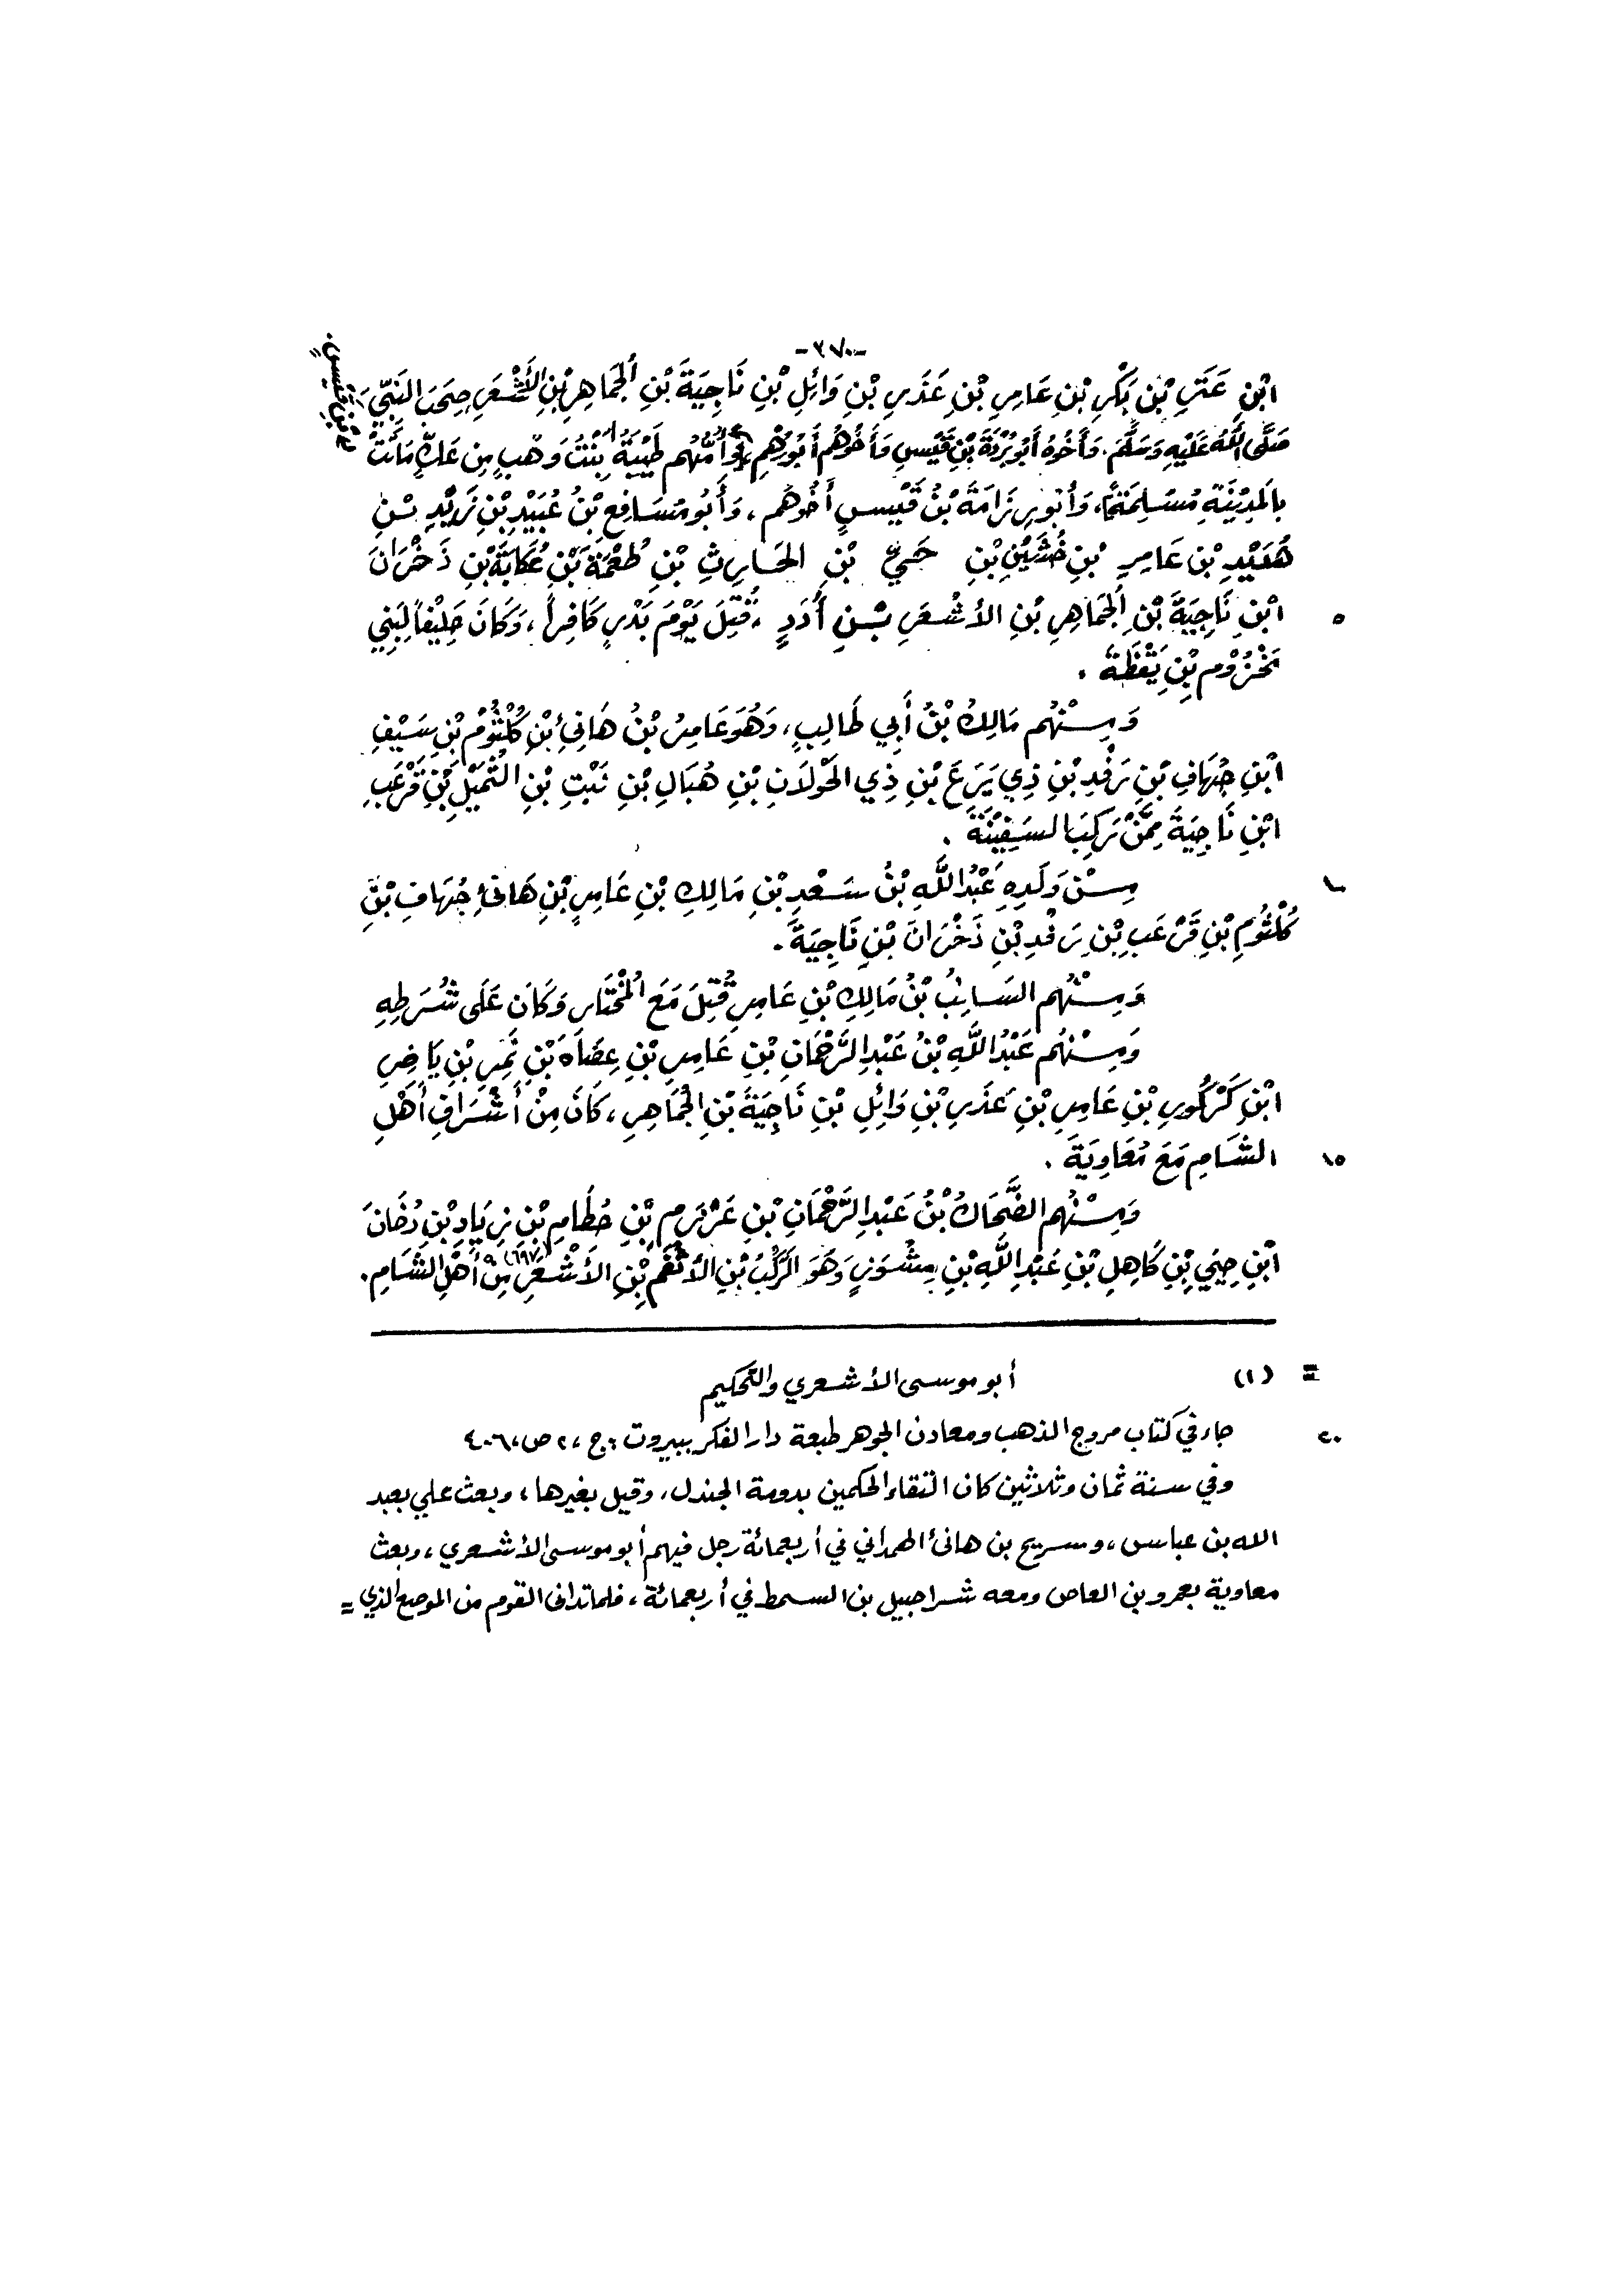 -٣٧٠-
ابْنِ عَتَرِ بْنِ بَكْرِ بْنِ عَامِرِ بْنِ عَذَرِ بْنِ وَائِلِ بْنِ نَاجِيَةَ بْنِ الجُمَاهِرِ بْنِ الأَشْعَرِ صَحِبَ النَبِّيَ
صَلَّى اللَّهُ عَلَيْهِ وَسَلَّمَ، وَأَخُوهُ أَبُو بُرْدَةَ بْنِ قَيْسٍ وَأَخُوهُم أَبُو رُهْمٍ وَأُمُّهُم طَيْبَةُ بِنْتُ وَهْبٍ مِن عَكٍّ مَاتَتْ
بْنِ قَيْسٍ.
بِالمَدِيْنَةِ مُسْلِمَةً، وَأَبُو رِزَامَةَ بْنُ قَيْسٍ أَخُوهُم، وَأَبُو مُسَافِعٍ بْنُ عُبَيْدِ بْنِ زَيْدِ بْنِ
هُنَيْدِ بْنِ عَامِرِ بْنِ خُشَيْنِ بْنِ حَيِّ بْنِ الحَارِثِ بْنِ طُعْمَةَ بْنِ عُكَابَةَ بْنِ ذَخْرَانَ
ابْنِ نَاجِيَةَ بْنِ الجُمَاهِرِ بْنِ الأَشْعَرِ بْنِ أُدَدٍ، قُتِلَ يَوْمَ بَدْرٍ كَافِراً، وَكَانَ حَلِيْفاً لِبَنِي
٥
مَخْزُوْمِ بْنِ يَقْظَةَ.
وَمِنْهُم مَالِكُ بْنُ أَبِي طَالِبٍ، وَهُوَ عَامِرُ بْنُ هَانِئِ بْنِ كُلْثُوْمِ بْنِ سَيْفِ
ابْنِ جُهَافِ بْنِ رَفْدِ بْنِ ذِي يَرَعَ بْنِ ذِي الحَوْلَانِ بْنِ هُبَالِ بْنِ نَبْتِ بْنِ الثُّمَيْلِ بْنِ قَرْعَبِ
ابْنِ نَاجِيَةَ مِمَّنْ رَكِبَ السَفِيْنَةَ.
مِنْ وَلَدِهِ عَبْدُ اللَّهِ بْنُ سَعْدِ بْنِ مَالِكِ بْنِ عَامِرِ بْنِ هَانِئِ جُهَافِ بْنِ
١٠
كُلْثُومِ بْنِ قَرْعَبِ بْنِ رَفْدِ بْنِ ذَخْرَانَ بْنِ نَاجِيَةَ.
وَمِنْهُم السَائِبُ بْنُ مَالِكِ بْنِ عَامِرٍ قُتِلَ مَعَ المُخْتَارِ وَكَانَ عَلَى شُرَطِهِ
وَمِنْهُم عَبْدُ اللَّهِ بْنُ عَبْدِ الرَّحْمَانِ بْنِ عَامِرِ بْنِ عِضَاهَ بْنِ نَمِرِ بْنِ يَاضِرِ
ابْنِ كَرْكُورِ بْنِ عَامِرِ بْنِ عَذَرِ بْنِ وَائِلِ بْنِ نَاجِيَةَ بْنِ الجُمَاهِرِ، كَانَ مِنْ أَشْرَافِ أَهْلِ
الشَامِ مَعَ مُعَاوِيَةَ.
١٥
وَمِنْهُم الضَّحَاكُ بْنُ عَبْدِ الرَّحْمَانِ بْنِ عَرْزَمِ بْنِ حُطَامِ بْنِ زِيَادِ بْنِ دُخَانَ
ابْنِ حِيَيِ بْنِ كَاهِلِ بْنِ عَبْدِ اللَّهِ بْنِ وَهُوَ المَرْكَبُ بْنِ الأَنْغَمِ بْنِ الأَشْعَرِ (٦٩٧) مِنْ أَهْلِ الشَامِ.
= (١) أبو موسى الأشعري والتحكيم
جاء في كتاب مروج الذهب ومعادن الجوهر طبعة دار الفكر ببيروت : ج، ٢ ص، ٤٠٦
٢٠
وفي سنة ثمان وثلاثين كان التقاء الحكمين بدومة الجندل، وقيل بغيرها، وبعث علي بعبد
الله بن عباس، وسريح بن هانئ الهمداني في أربعمائة رجل فيهم أبو موسى الأشعري، وبعث
معاوية بعمرو بن العاص ومعه شراحبيل بن السمط في أربعمائة، فلما تدانى القوم من الموضع الذي =